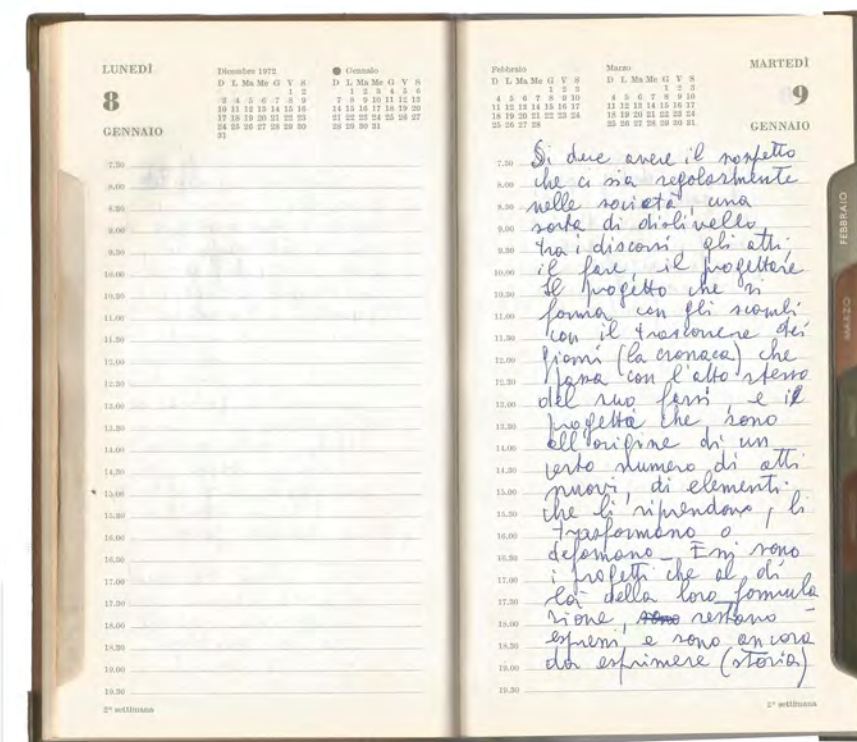 LUNEDÌ
8
GENNAIO
Dicembre 1972
D L Ma Me G V S
1 2
3 4 5 6 7 8 9
10 11 12 13 14 15 16
17 18 19 20 21 22 23
24 25 26 27 28 29 30
31
Gennaio
D L Ma Me G V S
1 2 3 4 5 6
7 8 9 10 11 12 13
14 15 16 17 18 19 20
21 22 23 24 25 26 27
28 29 30 31
7.30
8.00
8.30
9.00
9.30
10.00
10.30
11.00
11.30
12.00
12.30
13.00
13.30
14.00
14.30
15.00
15.30
16.00
16.30
17.00
17.30
18.00
18.30
19.00
19.30
2ª settimana
Febbraio
D L Ma Me G V S
1 2 3
4 5 6 7 8 9 10
11 12 13 14 15 16 17
18 19 20 21 22 23 24
25 26 27 28
Marzo
D L Ma Me G V S
1 2 3
4 5 6 7 8 9 10
11 12 13 14 15 16 17
18 19 20 21 22 23 24
25 26 27 28 29 30 31
MARTEDÌ
9
GENNAIO
7.30 Si deve avere il sospetto
8.00 che ci sia regolarmente
8.30 nelle società, una
9.00 sorta di dislivello
9.30 tra i discorsi, gli atti,
10.00 il fare, il progettare
10.30 Il progetto che si
11.00 forma con gli scambi
11.30 con il trascorrere dei
12.00 giorni (la cronaca) che
12.30 passa con l'atto stesso
13.00 del suo farsi, e il
13.30 progetto che sono
14.00 all'origine di un
14.30 certo numero di atti
15.00 nuovi, di elementi
15.30 che li riprendono, li
16.00 trasformano o
16.30 defomano_ Essi sono
17.00 i progetti che al di
17.30 là della loro formula
18.00 zione, sono restano
18.30 espressi e sono ancora
19.00 da esprimere (storia)
19.30
2ª settimana
FEBBRAIO
MARZO